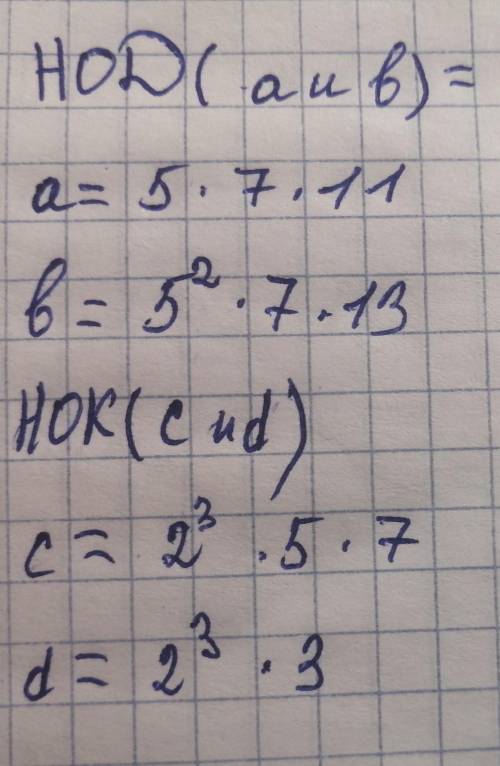 НОД( а и в) =
а = 5 · 7 · 11
в = 5² · 7 · 13
НОК( с и d)
с = 2³ · 5 · 7
d = 2³ · 3